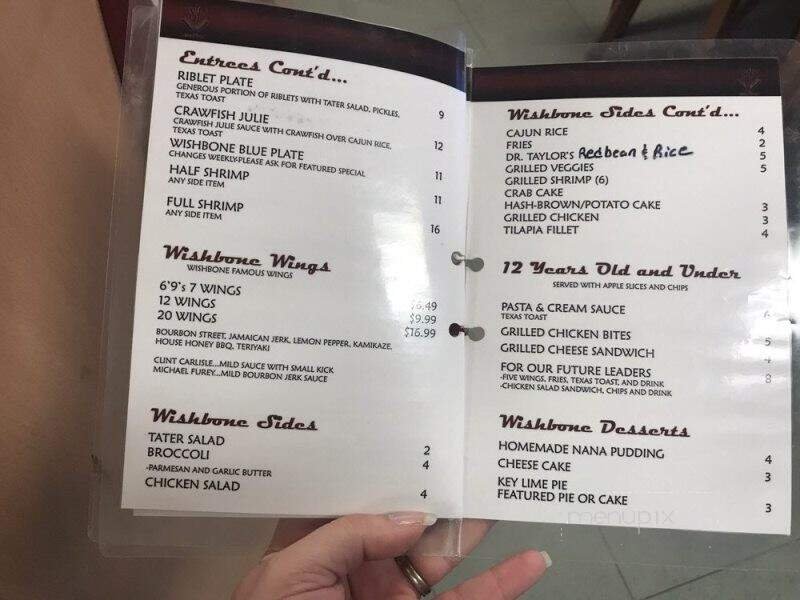 Entrees Cont'd...
RIBLET PLATE
GENEROUS PORTION OF RIBLETS WITH TATER SALAD, PICKLES, 9
TEXAS TOAST
CRAWFISH JULIE
CRAWFISH JULIE SAUCE WITH CRAWFISH OVER CAJUN RICE, 12
TEXAS TOAST
WISHBONE BLUE PLATE
CHANGES WEEKLY.PLEASE ASK FOR FEATURED SPECIAL 11
HALF SHRIMP
ANY SIDE ITEM 11
FULL SHRIMP
ANY SIDE ITEM 16
Wishbone Wings
WISHBONE FAMOUS WINGS
6'9's 7 WINGS $6.49
12 WINGS $9.99
20 WINGS $16.99
BOURBON STREET, JAMAICAN JERK, LEMON PEPPER, KAMIKAZE,
HOUSE HONEY BBQ, TERIYAKI
CLINT CARLISLE...MILD SAUCE WITH SMALL KICK
MICHAEL FUREY...MILD BOURBON JERK SAUCE
Wishbone Sides
TATER SALAD 2
BROCCOLI 4
-PARMESAN AND GARLIC BUTTER
CHICKEN SALAD 4
Wishbone Sides Cont'd...
CAJUN RICE 4
FRIES 2
DR. TAYLOR'S Redbean & Rice 5
GRILLED VEGGIES 5
GRILLED SHRIMP (6)
CRAB CAKE
HASH-BROWN/POTATO CAKE 3
GRILLED CHICKEN 3
TILAPIA FILLET 4
12 Years Old and Under
SERVED WITH APPLE SLICES AND CHIPS
PASTA & CREAM SAUCE 6
TEXAS TOAST
GRILLED CHICKEN BITES 5
GRILLED CHEESE SANDWICH 4
FOR OUR FUTURE LEADERS 8
-FIVE WINGS, FRIES, TEXAS TOAST, AND DRINK
-CHICKEN SALAD SANDWICH, CHIPS AND DRINK
Wishbone Desserts
HOMEMADE NANA PUDDING 4
CHEESE CAKE 3
KEY LIME PIE
FEATURED PIE OR CAKE 3
menupix